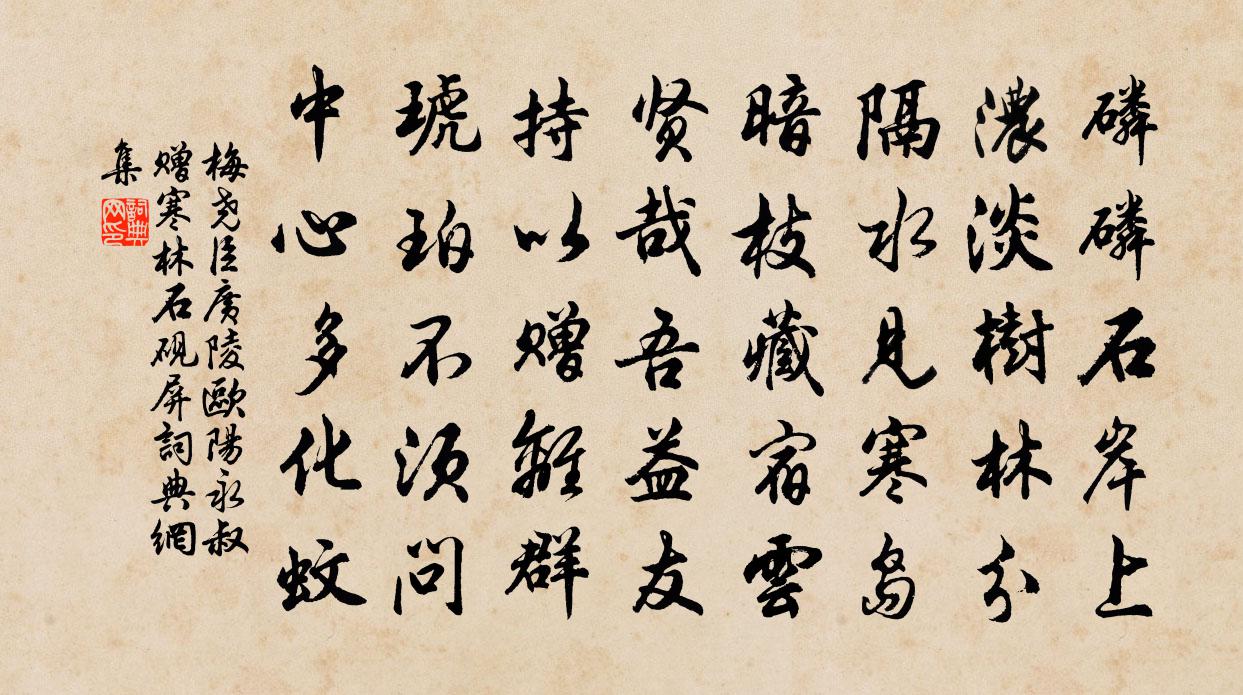 磷磷石岸上
濃淡樹林分
隔水見寒島
暗枝藏宿雲
贤哉吾益友
持以赠離群
琥珀不須问
中心多化蚊
梅尧臣廣陵歐陽永叔
赠寒林石硯屏詞典網
集
詞典
网印